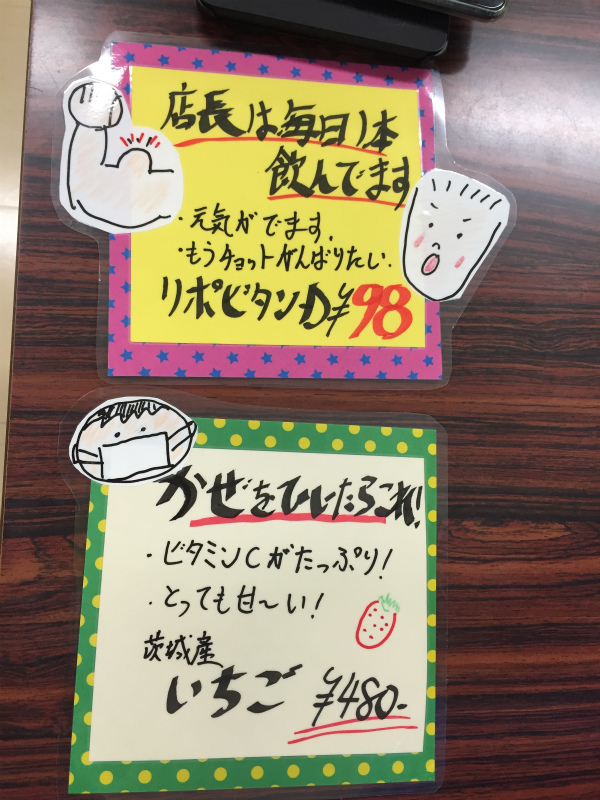 店長は毎日1本
飲んでます
・元気がでます.
・もうチョットがんばりたい.
リポビタンD¥98
かぜをひいたらこれ!
・ビタミンCがたっぷり!
・とっても甘〜い!
茨城産
いちご ¥480-